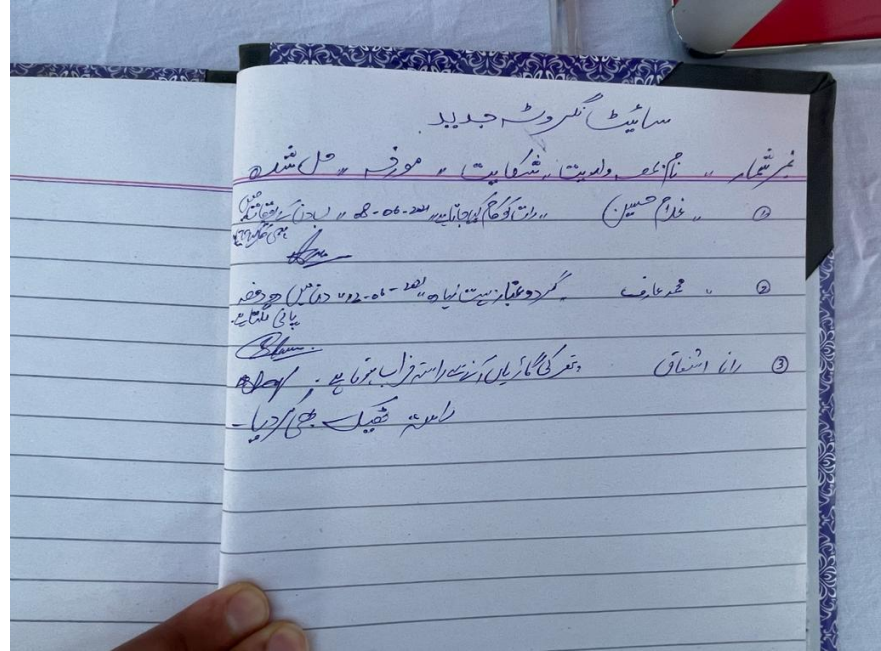 سائیٹ نکروٹہ جدید
نمبر شمار " نام بمعہ ولدیت " شکایت " مورخہ " حل شدہ
① " غلام حسین " رات کو کام کیا جاتا ہے " 08-06-2021 "
② " محمد عارف " گردوغبار بہت زیادہ " 02-06-2021 " دن میں دو دفعہ
پانی لگتا ہے۔
③ رانا اشفاق " پتھر کی گاڑیاں آنے سے راستہ خراب ہوتا ہے۔
راستہ ٹھیک بھی کر دیا۔